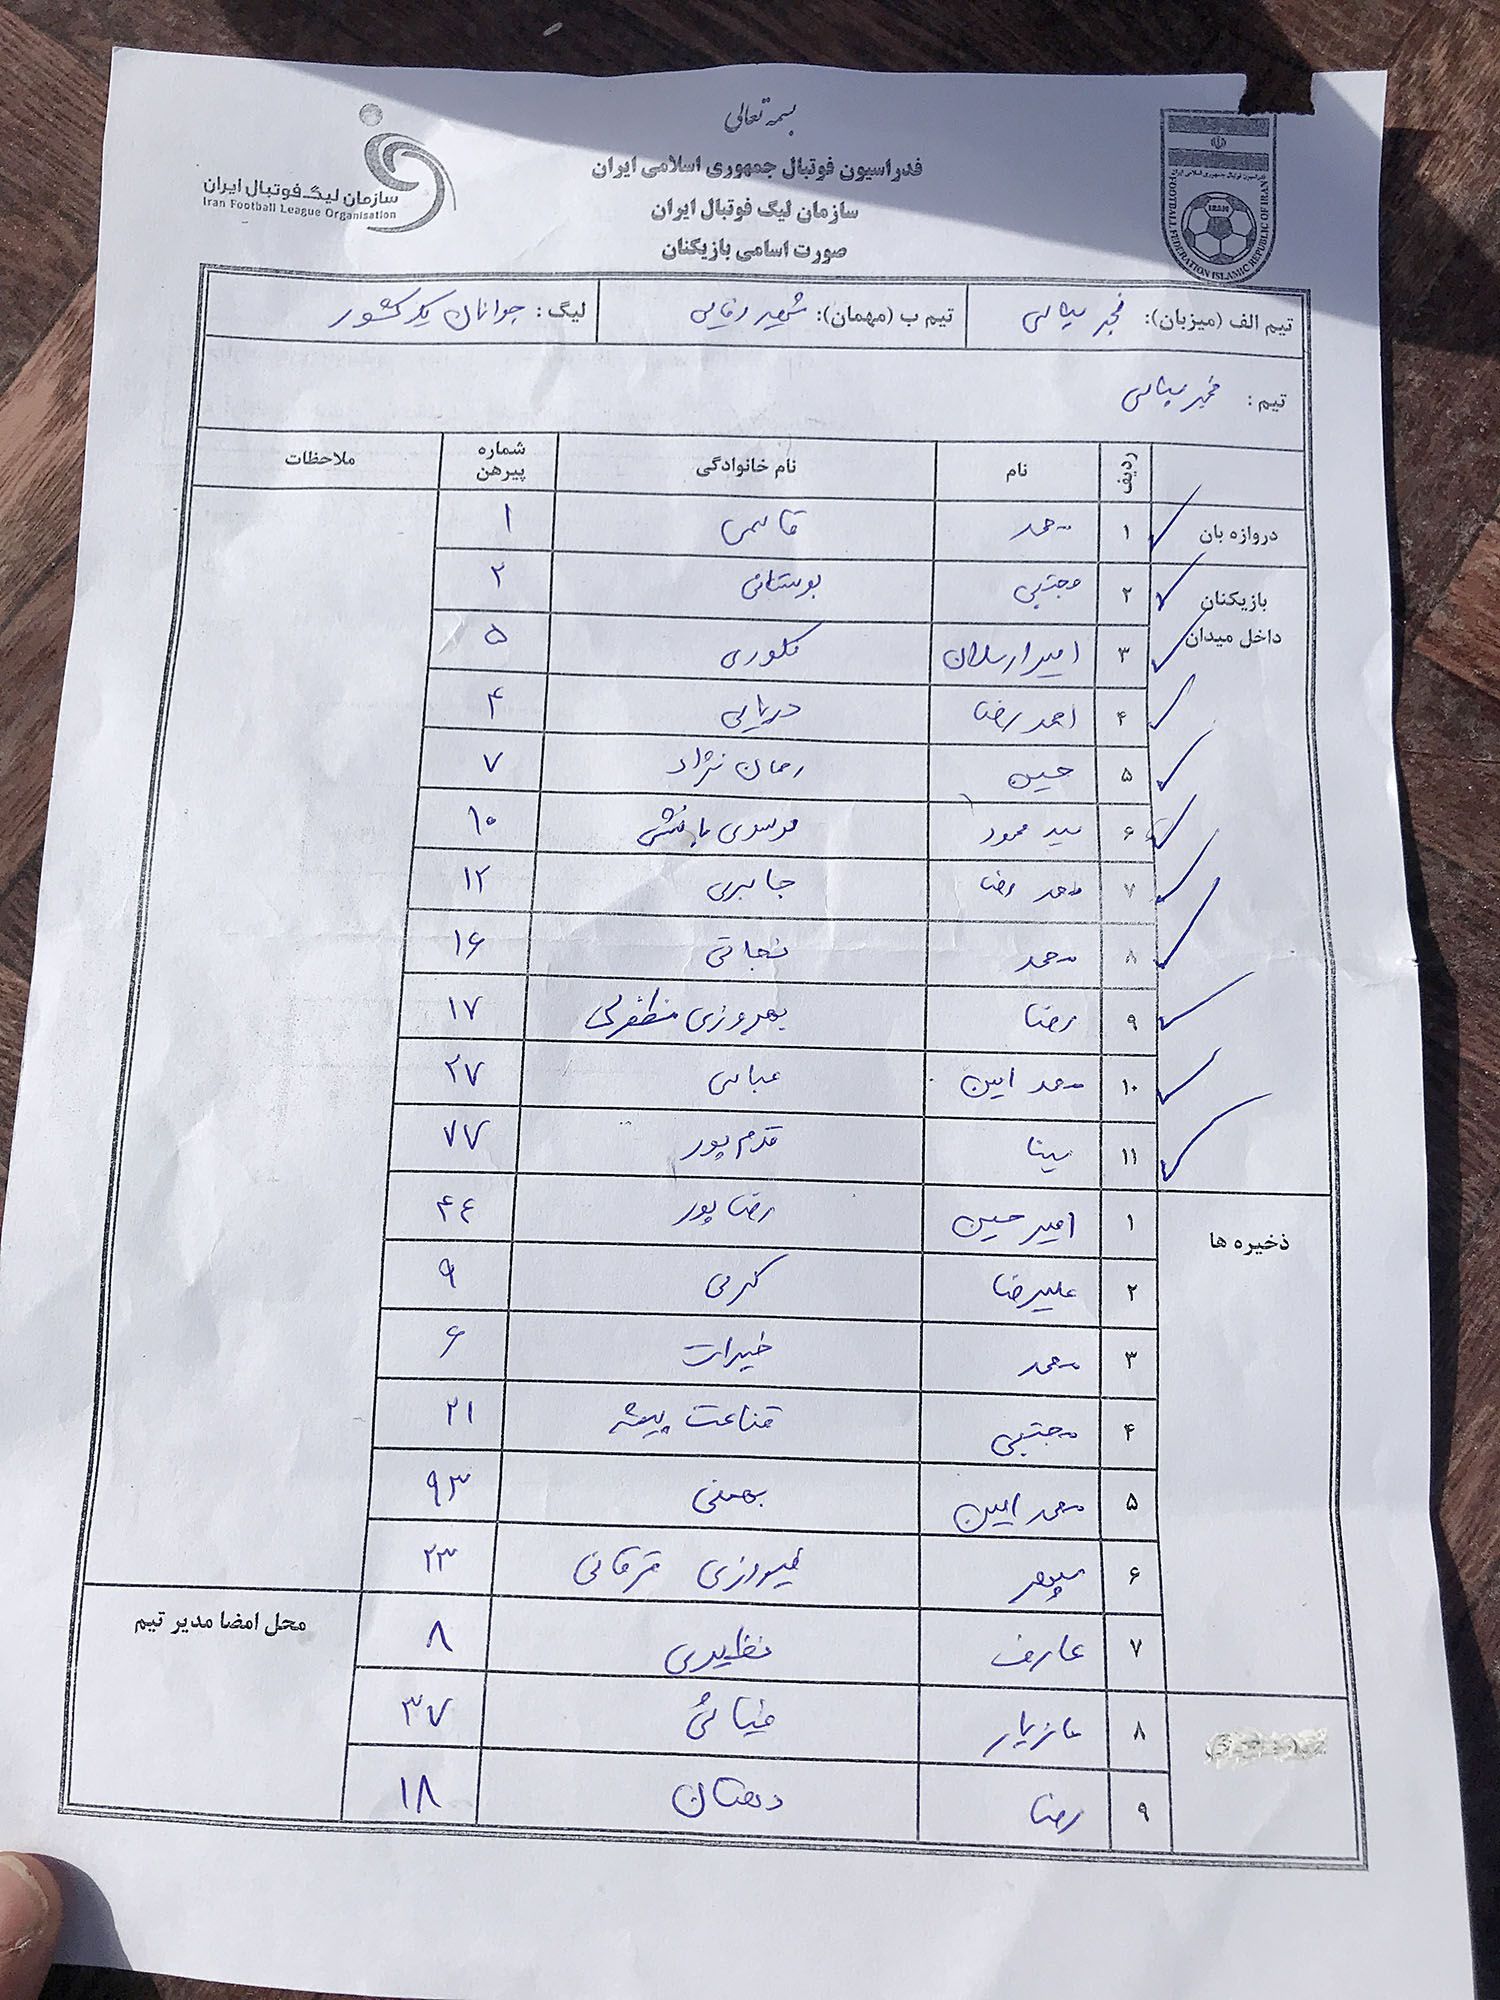 بسمه تعالی
فدراسیون فوتبال جمهوری اسلامی ایران
سازمان لیگ فوتبال ایران
صورت اسامی بازیکنان
فدراسیون فوتبال جمهوری اسلامی ایران
IRAN
FOOTBALL FEDERATION ISLAMIC REPUBLIC OF IRAN
سازمان لیگ فوتبال ایران
Iran Football League Organisation
تیم الف (میزبان): فجر سپاسی تیم ب (مهمان): شهید رفایی لیگ: جوانان یک کشور
تیم: فجر سپاسی
ردیف نام نام خانوادگی شماره پیرهن ملاحظات
دروازه بان ۱ محمد قاسمی ۱
بازیکنان ۲ مجتبی بوستانی ۲
داخل میدان ۳ امیر ارسلان مکوری ۵
۴ احمدرضا دریایی ۴
۵ حسین رحمان نژاد ۷
۶ سید محمود موسوی ۱۰
۷ محمدرضا جابری ۱۲
۸ محمد نجاتی ۱۶
۹ رضا بهروزی مظفرلی ۱۷
۱۰ محمد امین عباسی ۲۷
۱۱ سینا قدم پور ۷۷
ذخیره ها ۱ امیرحسین رضا پور ۴۴
۲ علیرضا کرمی ۹
۳ محمد خیرات ۶
۴ مجتبی قناعت پیشه ۲۱
۵ محمد امین بهمنی ۹۳
۶ سپهر فیروزی قرقانی ۲۳
۷ عارف نظیری ۸ محل امضا مدیر تیم
۸ مازیار ضیائی ۳۷
۹ رضا دهقان ۱۸